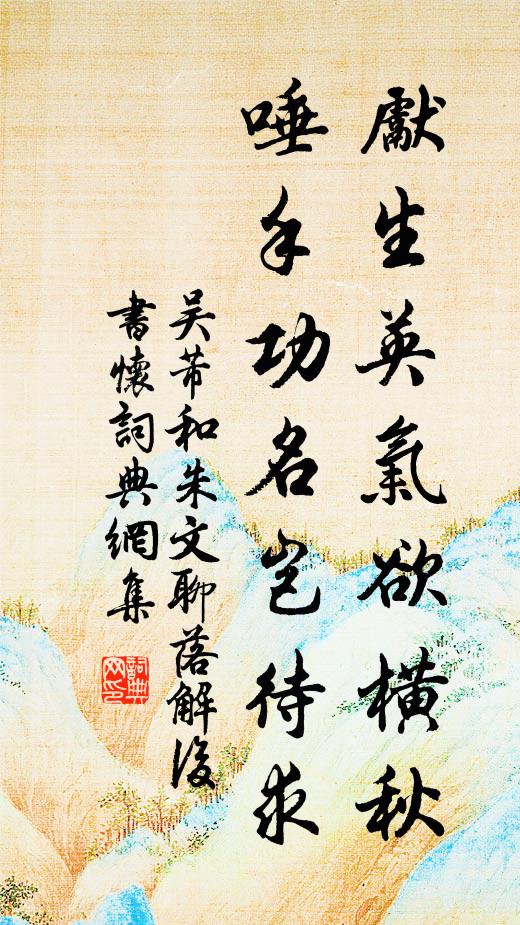 獻生英氣欲橫秋
唾手功名豈待求
吳芾和朱文聊落解後
書懷詞典網集
詞典網印